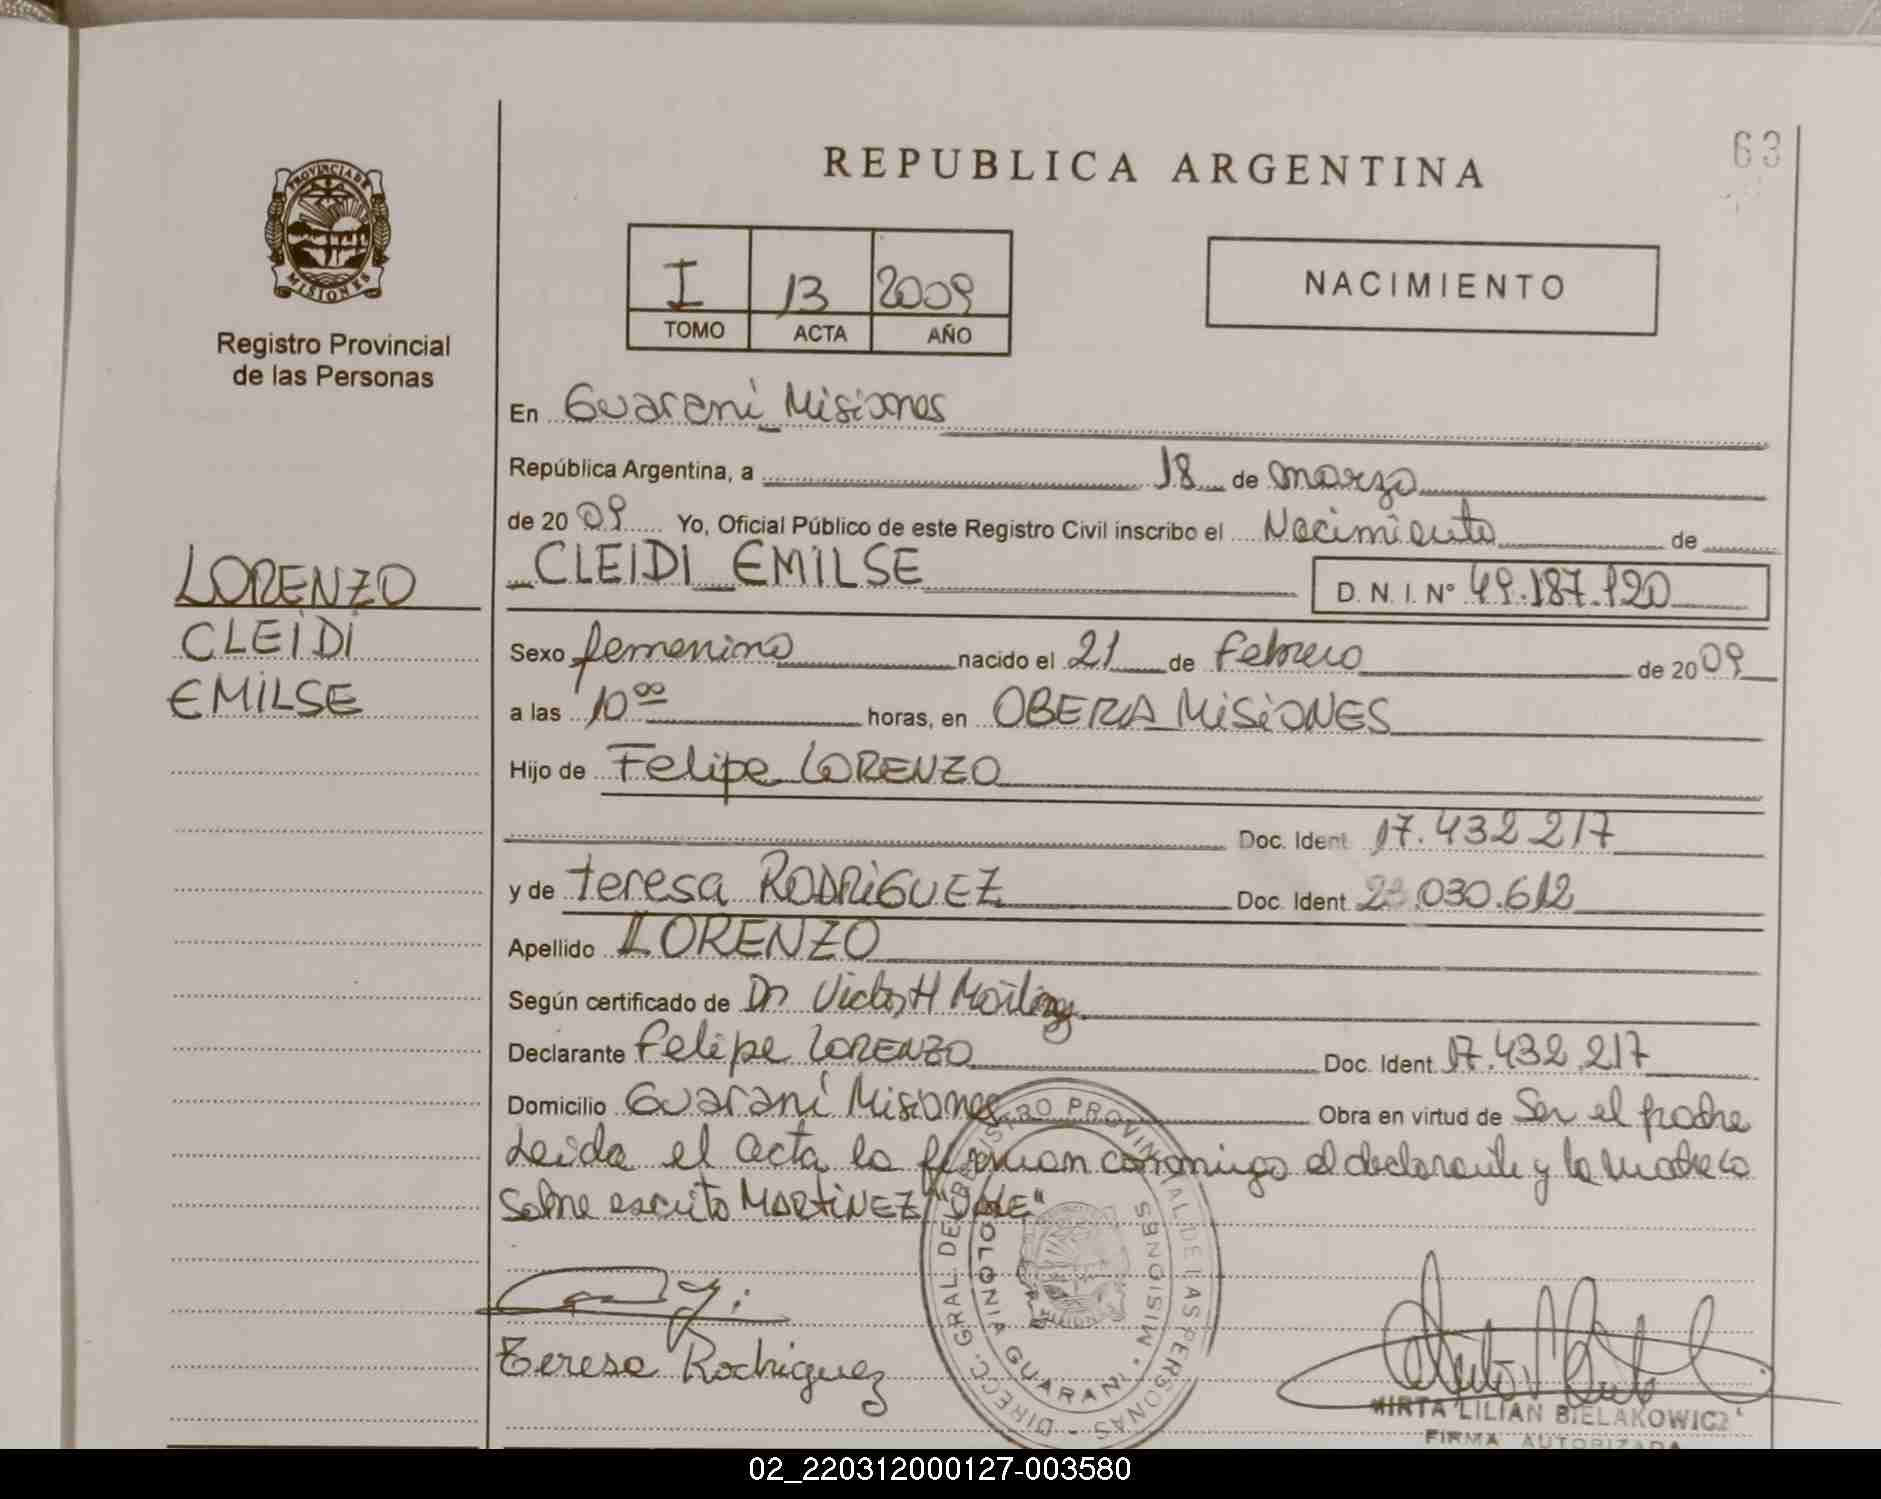 REPUBLICA ARGENTINA
63
PROVINCIA DE
MISIONES
Registro Provincial
de las Personas
I 13 2009
TOMO ACTA AÑO
NACIMIENTO
En Guarani Misiones
República Argentina, a 18 de marzo
de 20 09 Yo, Oficial Público de este Registro Civil inscribo el Nacimiento de
CLEIDI EMILSE D.N.I. Nº 49.187.120
LORENZO
CLEIDI
EMILSE
Sexo femenino nacido el 21 de Febrero de 20 09
a las 10 00 horas, en OBERA MISIONES
Hijo de Felipe LORENZO
Doc. Ident 17.432 217
y de teresa RODRIGUEZ Doc. Ident. 23.030.612
Apellido LORENZO
Según certificado de Dr Victor H
Declarante Felipe LORENZO Doc. Ident. 17.432.217
Domicilio Guarani Misiones Obra en virtud de Ser el padre
Leida el acta la firman conmigo el declarante y la madre
Sobre escrito MARTINEZ "VALE"
DIRECC. GRAL. DEL REGISTRO PROVINCIAL DE LAS PERSONAS
COLONIA GUARANI - MISIONES
Teresa Rodriguez
MIRTA LILIAN BIELAKOWICZ
FIRMA AUTORIZADA
02_220312000127-003580